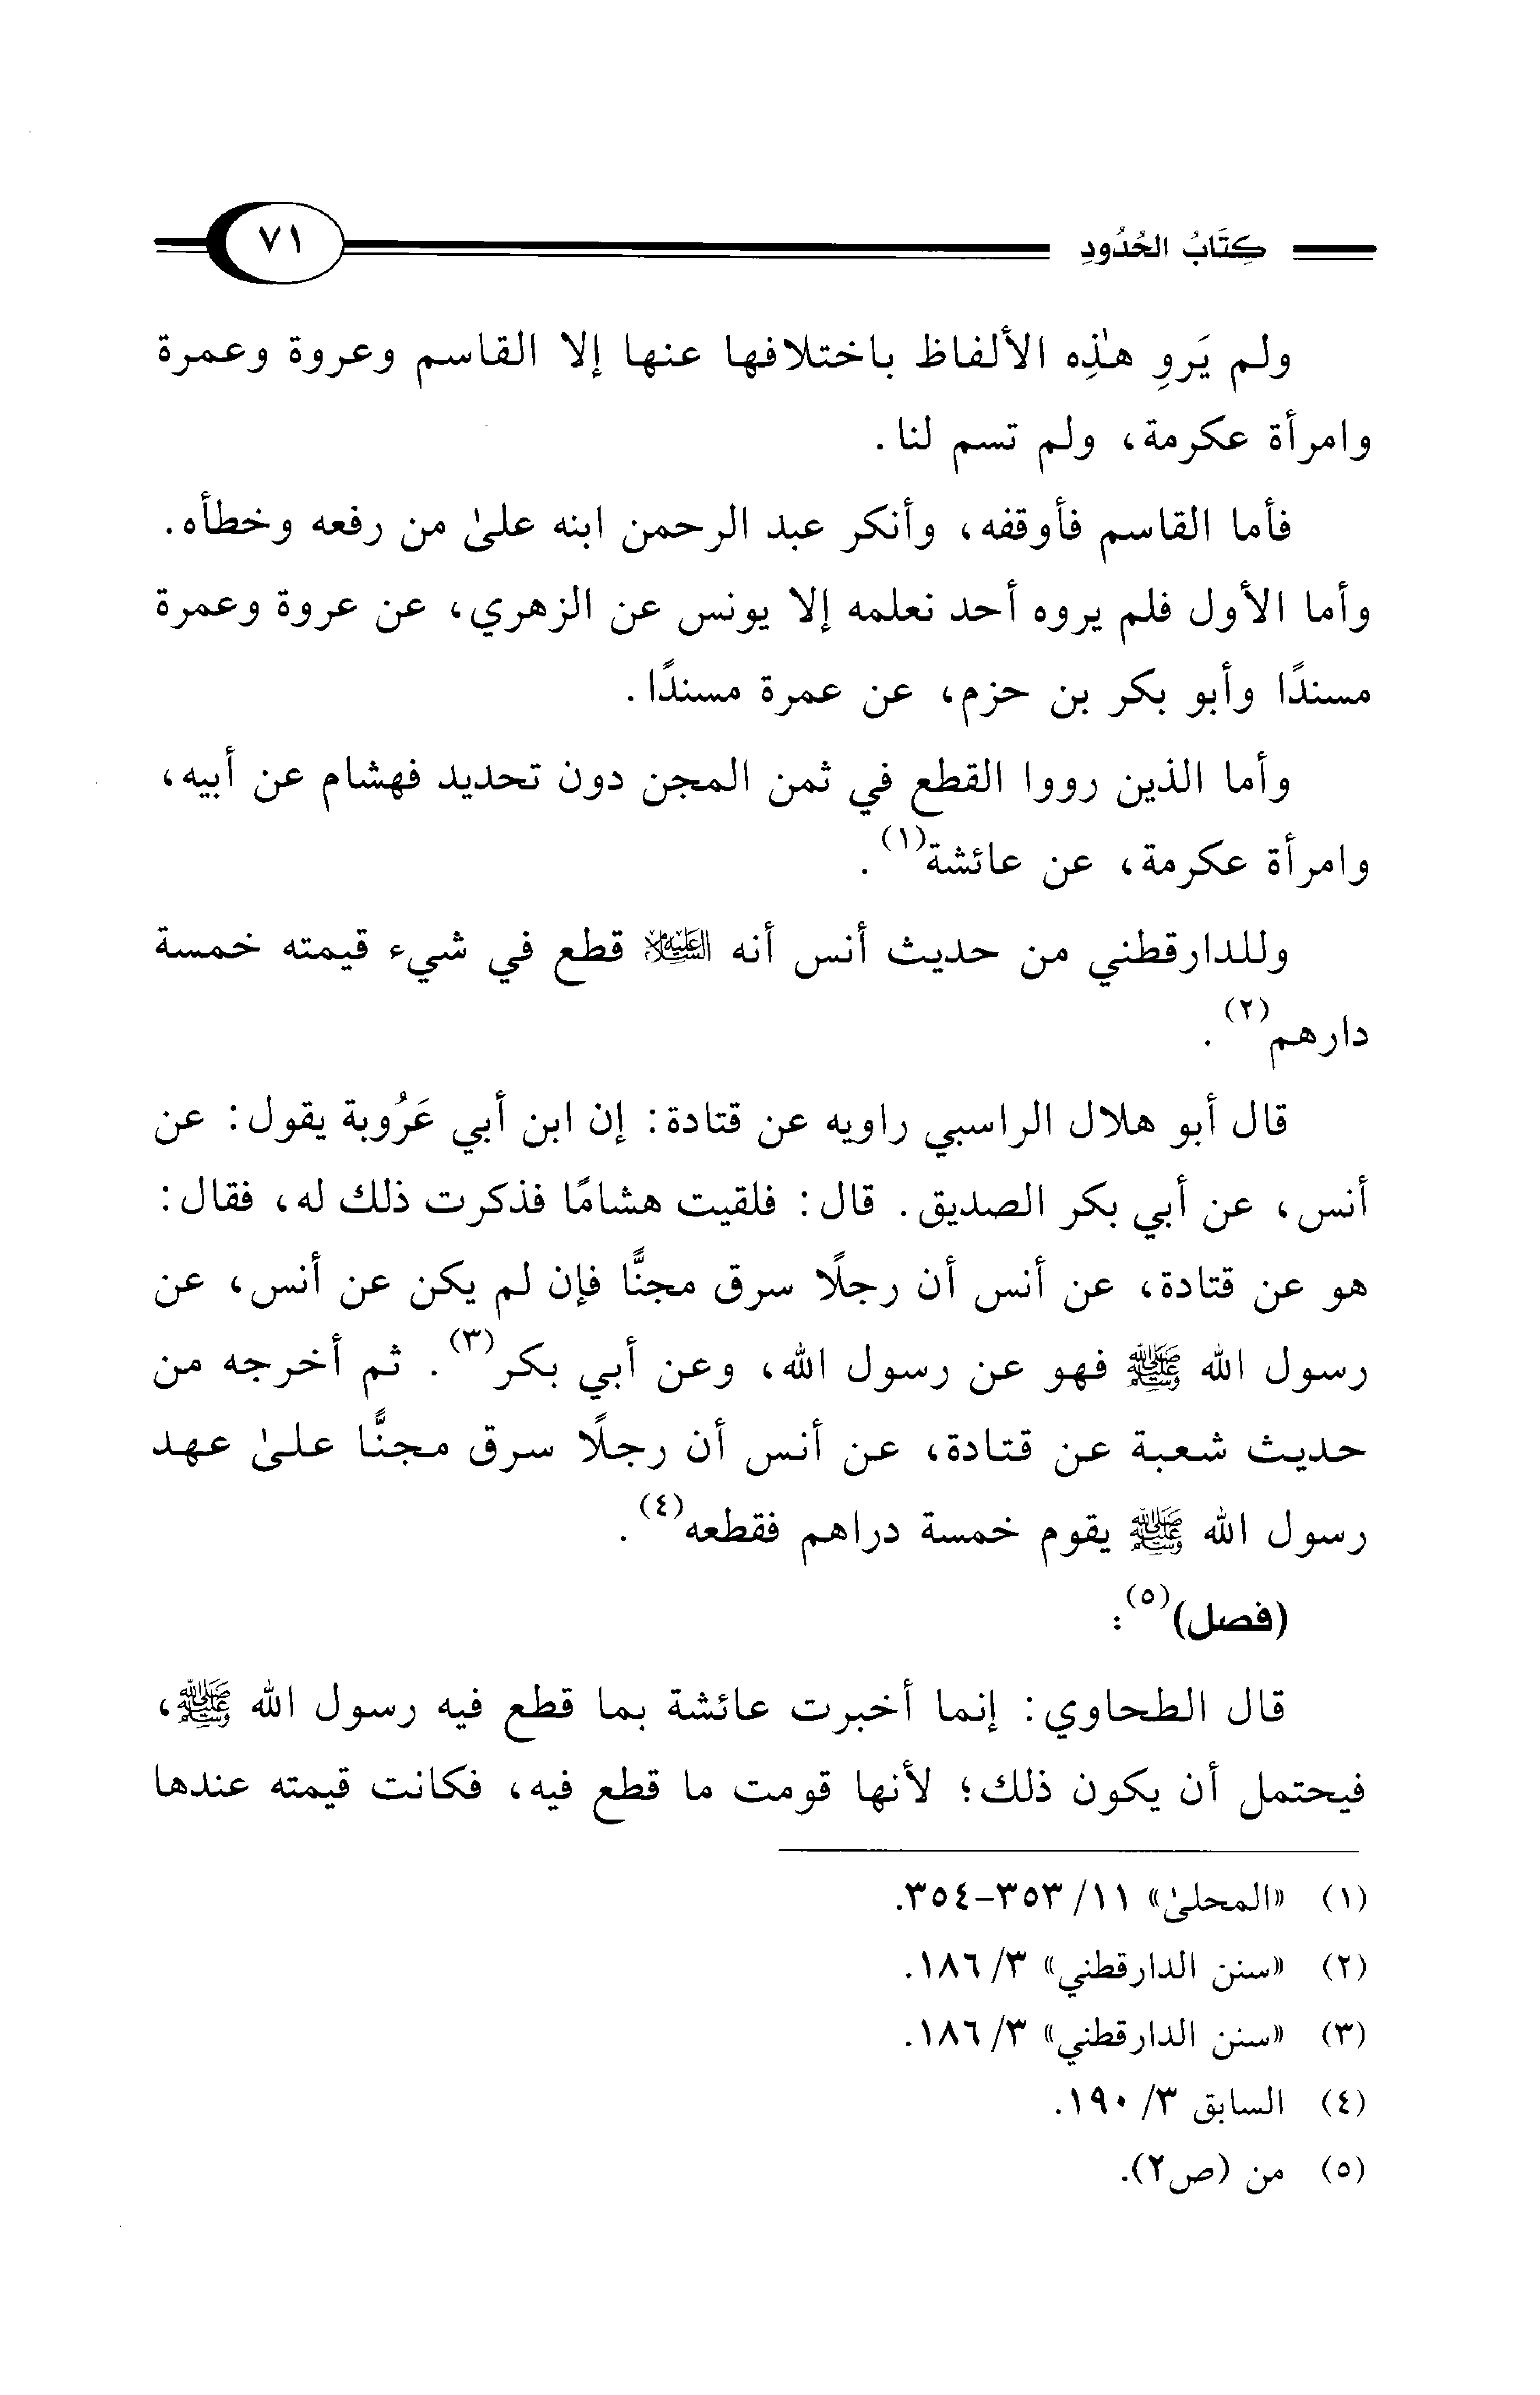 كِتَابُ الحُدُودِ ٧١
ولم يَروِ هذِه الألفاظ باختلافها عنها إلا القاسم وعروة وعمرة
وامرأة عكرمة، ولم تسم لنا.
فأما القاسم فأوقفه، وأنكر عبد الرحمن ابنه علىٰ من رفعه وخطأه.
وأما الأول فلم يروه أحد نعلمه إلا يونس عن الزهري، عن عروة وعمرة
مسندًا وأبو بكر بن حزم، عن عمرة مسندًا.
وأما الذين رووا القطع في ثمن المجن دون تحديد فهشام عن أبيه،
وامرأة عكرمة، عن عائشة(١).
وللدارقطني من حديث أنس أنه العَلَيْهِ السَّلام قطع في شيء قيمته خمسة
دارهم(٢).
قال أبو هلال الراسبي راويه عن قتادة: إن ابن أبي عَرُوبة يقول: عن
أنس، عن أبي بكر الصديق. قال: فلقيت هشامًا فذكرت ذلك له، فقال:
هو عن قتادة، عن أنس أن رجلًا سرق مجنًّا فإن لم يكن عن أنس، عن
رسول الله ﷺ فهو عن رسول الله، وعن أبي بكر(٣). ثم أخرجه من
حديث شعبة عن قتادة، عن أنس أن رجلًا سرق مجنًّا علىٰ عهد
رسول الله ﷺ يقوم خمسة دراهم فقطعه(٤).
(فصل)(٥):
قال الطحاوي: إنما أخبرت عائشة بما قطع فيه رسول الله ﷺ،
فيحتمل أن يكون ذلك؛ لأنها قومت ما قطع فيه، فكانت قيمته عندها
(١) «المحلىٰ» ١١/ ٣٥٣-٣٥٤.
(٢) «سنن الدارقطني» ٣/ ١٨٦.
(٣) «سنن الدارقطني» ٣/ ١٨٦.
(٤) السابق ٣/ ١٩٠.
(٥) من (ص٢).